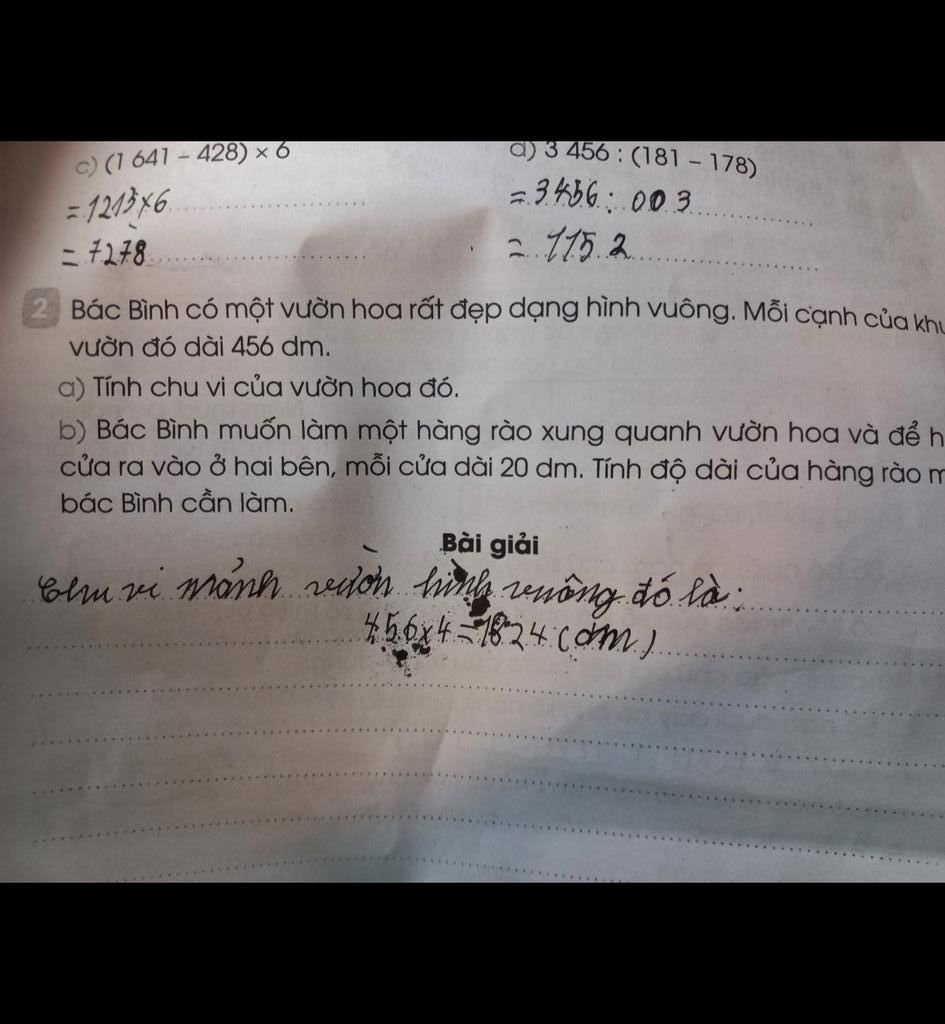 c) (1 641 – 428) × 6
d) 3 456 : (181 – 178)
= 1213 x 6
= 3456 : 003
= 7278
= 1152
2 Bác Bình có một vườn hoa rất đẹp dạng hình vuông. Mỗi cạnh của khu
vườn đó dài 456 dm.
a) Tính chu vi của vườn hoa đó.
b) Bác Bình muốn làm một hàng rào xung quanh vườn hoa và để h
cửa ra vào ở hai bên, mỗi cửa dài 20 dm. Tính độ dài của hàng rào m
bác Bình cần làm.
Bài giải
Chu vi mảnh vườn hình vuông đó là:
456 x 4 = 1824 (dm)